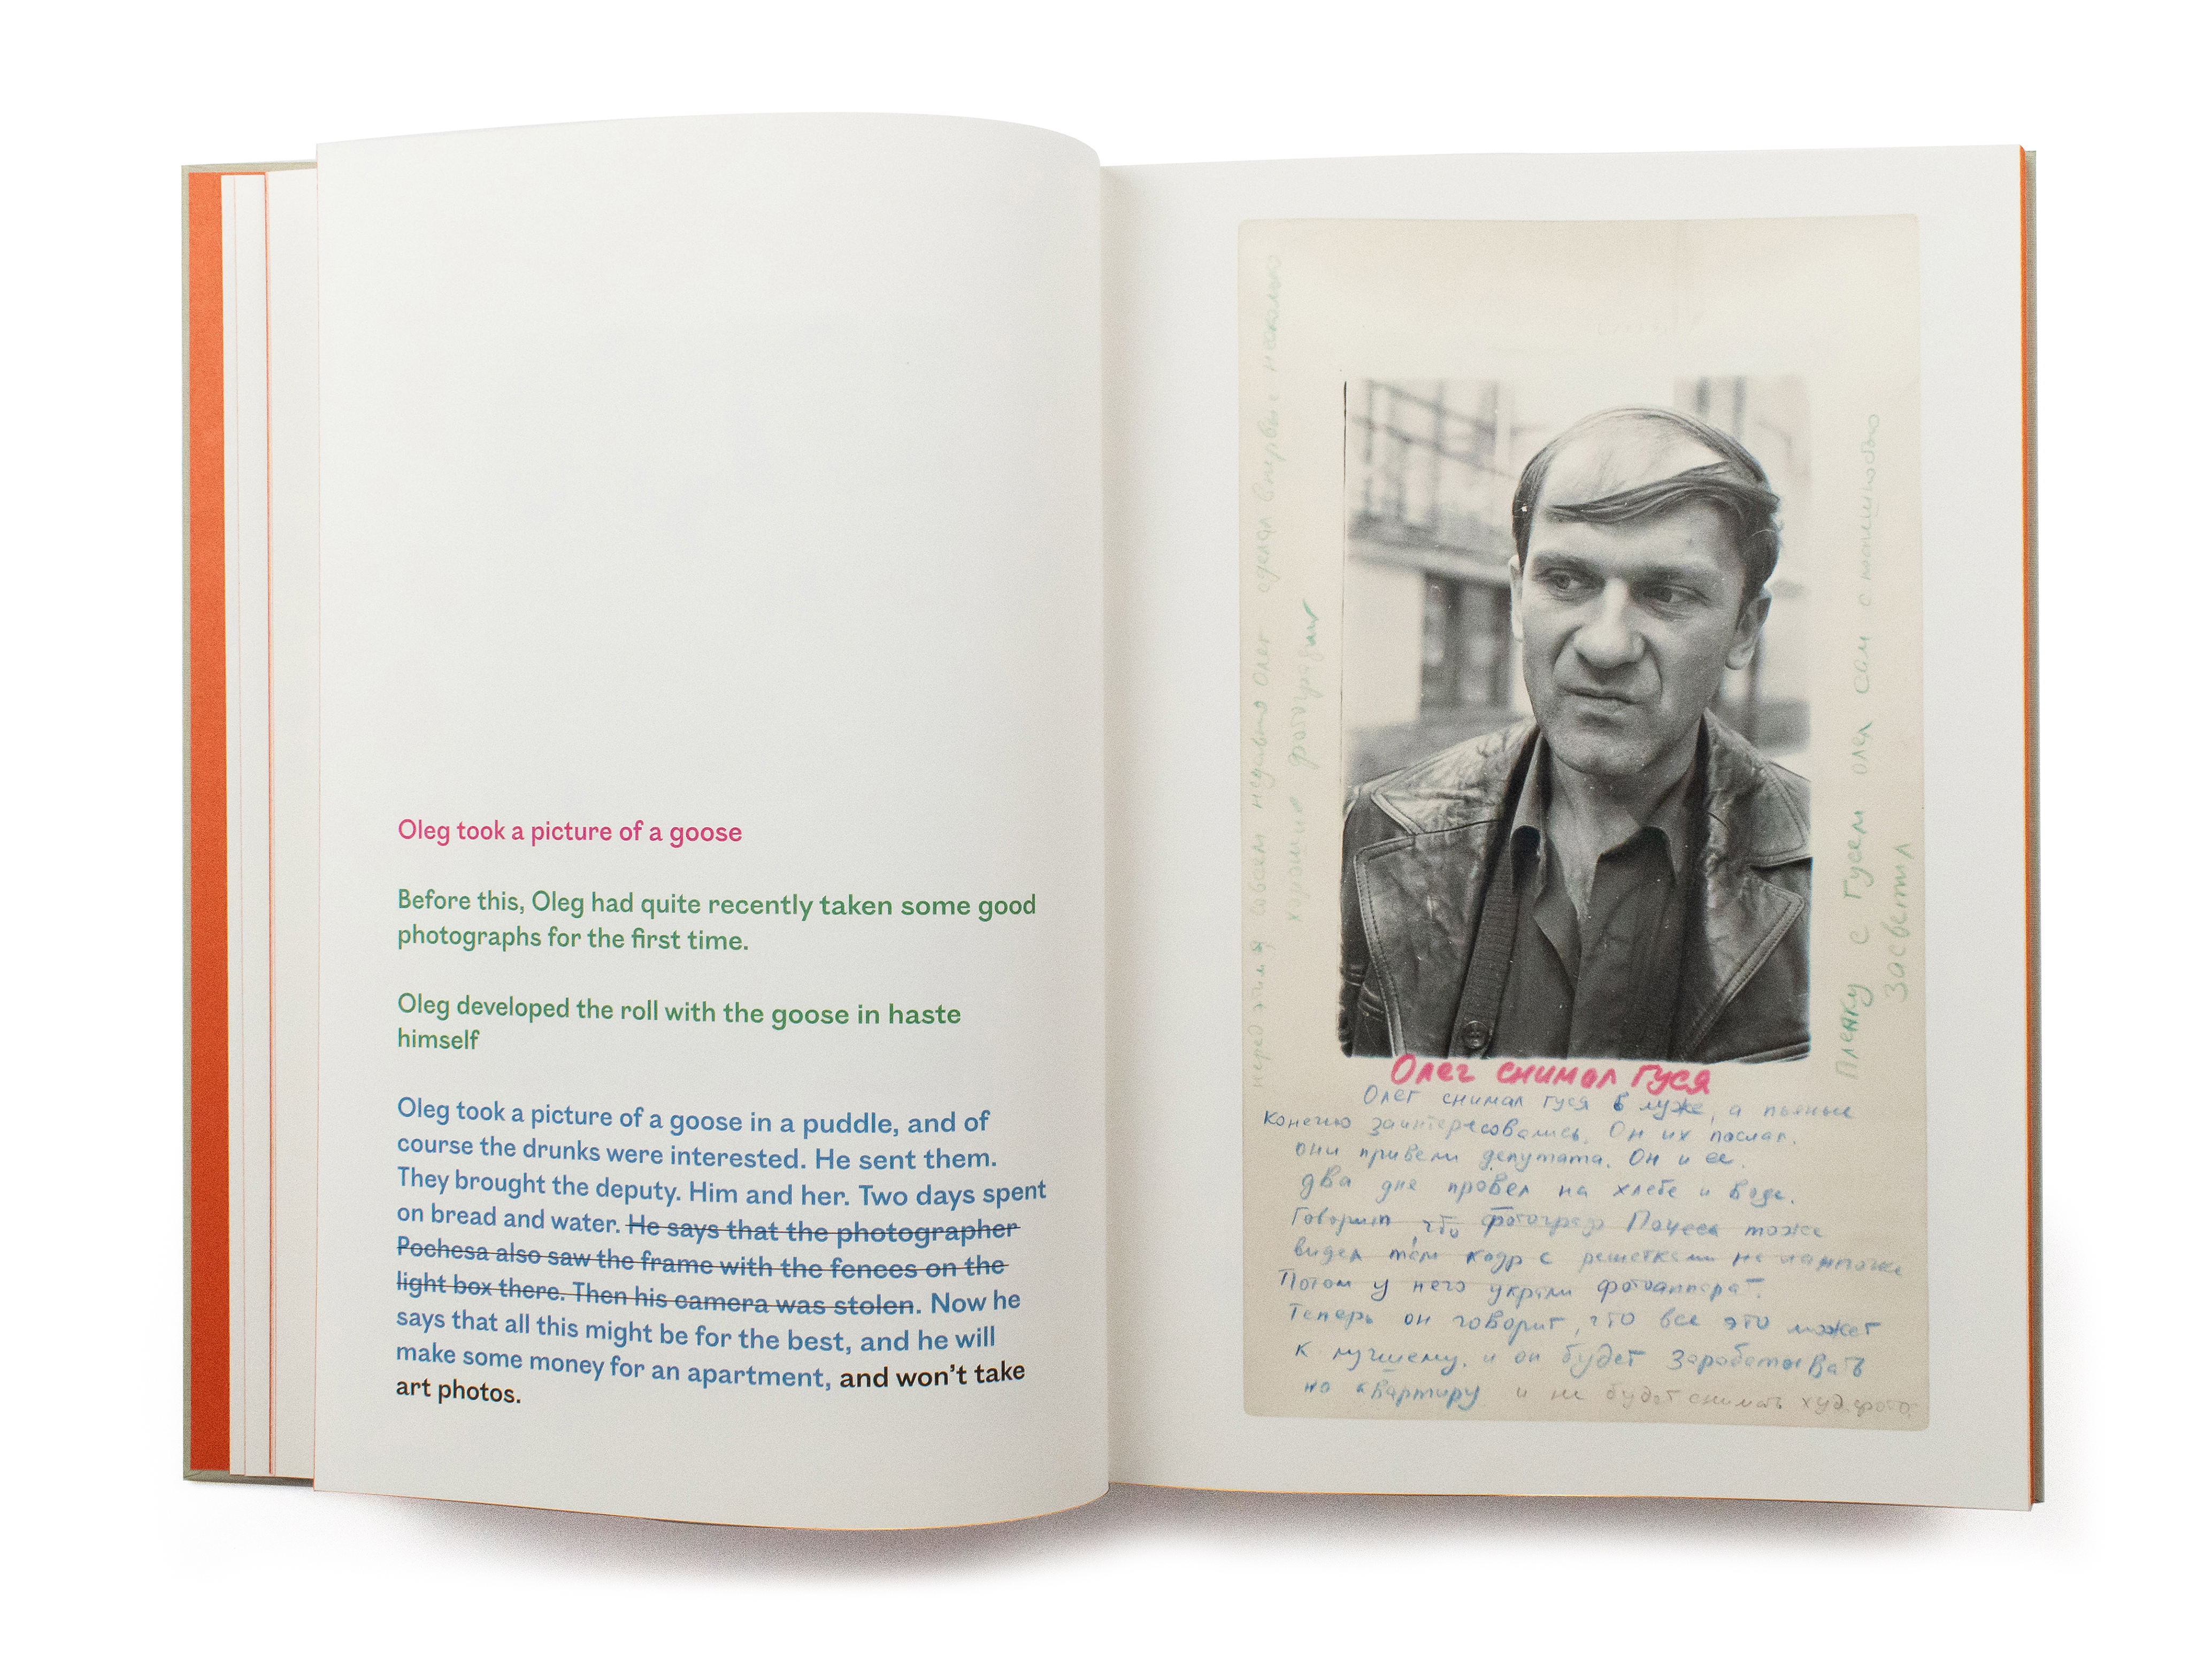 Oleg took a picture of a goose
Before this, Oleg had quite recently taken some good
photographs for the first time.
Oleg developed the roll with the goose in haste
himself
Oleg took a picture of a goose in a puddle, and of
course the drunks were interested. He sent them.
They brought the deputy. Him and her. Two days spent
on bread and water. He says that the photographer
Pochesa also saw the frame with the fences on the
light box there. Then his camera was stolen. Now he
says that all this might be for the best, and he will
make some money for an apartment, and won't take
art photos.
перед этим совсем недавно Олег сделал впервые несколько
хорошие фотографии
Пленку с Гусем олег сам с
засветил
Олег снимал Гуся
Олег снимал гуся в луже, а пьяные
Конечно заинтересовались. Он их послал.
они привели депутата. Он и ее.
два дне провел на хлебе и воде.
Говорит, что фотограф тоже
видел там кадр с решетками на
Потом у него украли фотоаппарат.
Теперь он говорит, что все это может
к лучшему. и он будет заработывать
на квартиру и не будет снимать худ. фото.